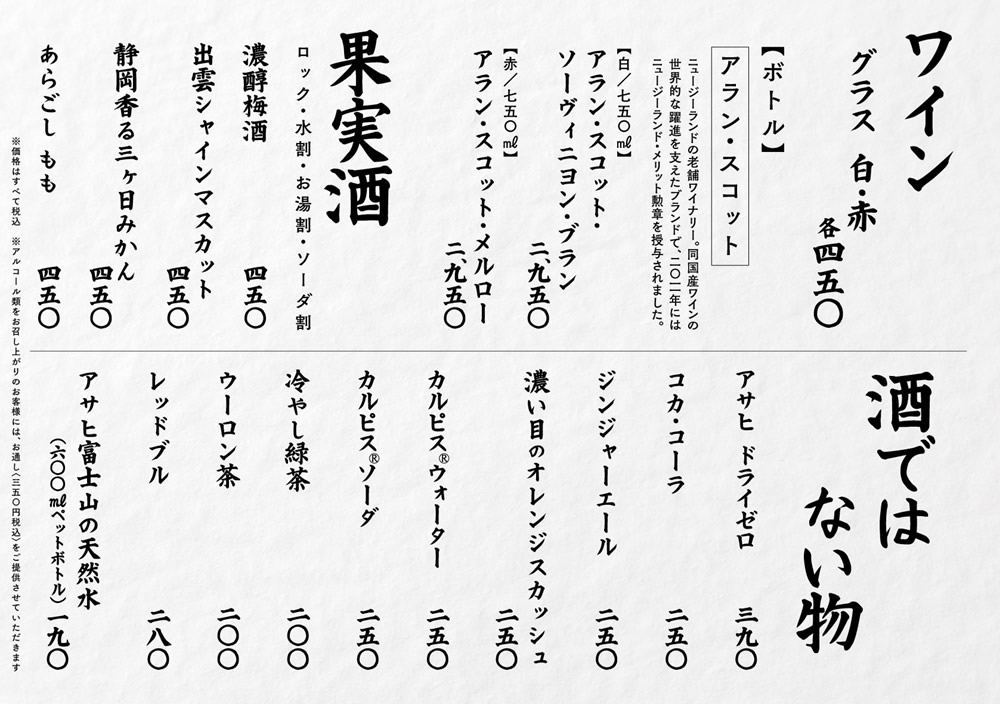 ワイン
グラス 白・赤
各四五〇
【ボトル】
アラン・スコット
ニュージーランドの老舗ワイナリー。同国産ワインの
世界的な躍進を支えたブランドで、二〇一一年には
ニュージーランド・メリット勲章を授与されました。
【白／七五〇㎖】
アラン・スコット・
ソーヴィニヨン・ブラン
二、九五〇
【赤／七五〇㎖】
アラン・スコット・メルロー
二、九五〇
果実酒
ロック・水割・お湯割・ソーダ割
濃醇梅酒
四五〇
出雲シャインマスカット
四五〇
静岡香る三ヶ日みかん
四五〇
あらごし もも
四五〇
酒では
ない物
アサヒ ドライゼロ
三九〇
コカ・コーラ
二五〇
ジンジャーエール
二五〇
濃い目のオレンジスカッシュ
二五〇
カルピス®ウォーター
二五〇
カルピス®ソーダ
二五〇
冷やし緑茶
二〇〇
ウーロン茶
二〇〇
レッドブル
二八〇
アサヒ富士山の天然水
（六〇〇㎖ペットボトル）一九〇
※価格はすべて税込 ※アルコール類をお召し上がりのお客様には、お通し（三五〇円税込）をご提供させていただきます